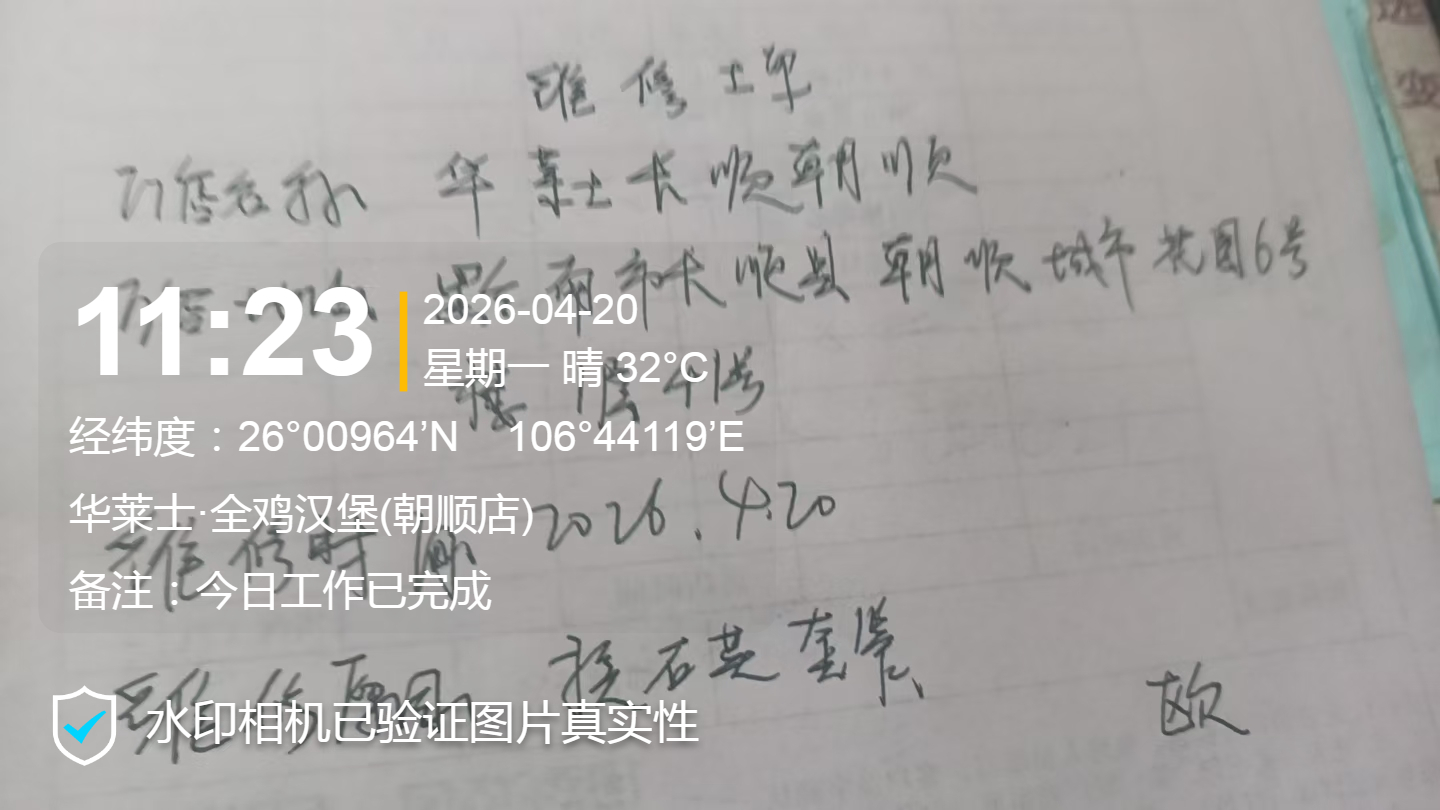 维修工单
门店名称 华莱士长顺朝顺
门店 黔南市长顺县朝顺城市花园6号
楼1层 1号
维修时间 2026.4.20
维修 换石英套管
欧
11:23
2026-04-20
星期一 晴 32°C
经纬度：26°00964’N 106°44119’E
华莱士·全鸡汉堡(朝顺店)
备注：今日工作已完成
水印相机已验证图片真实性